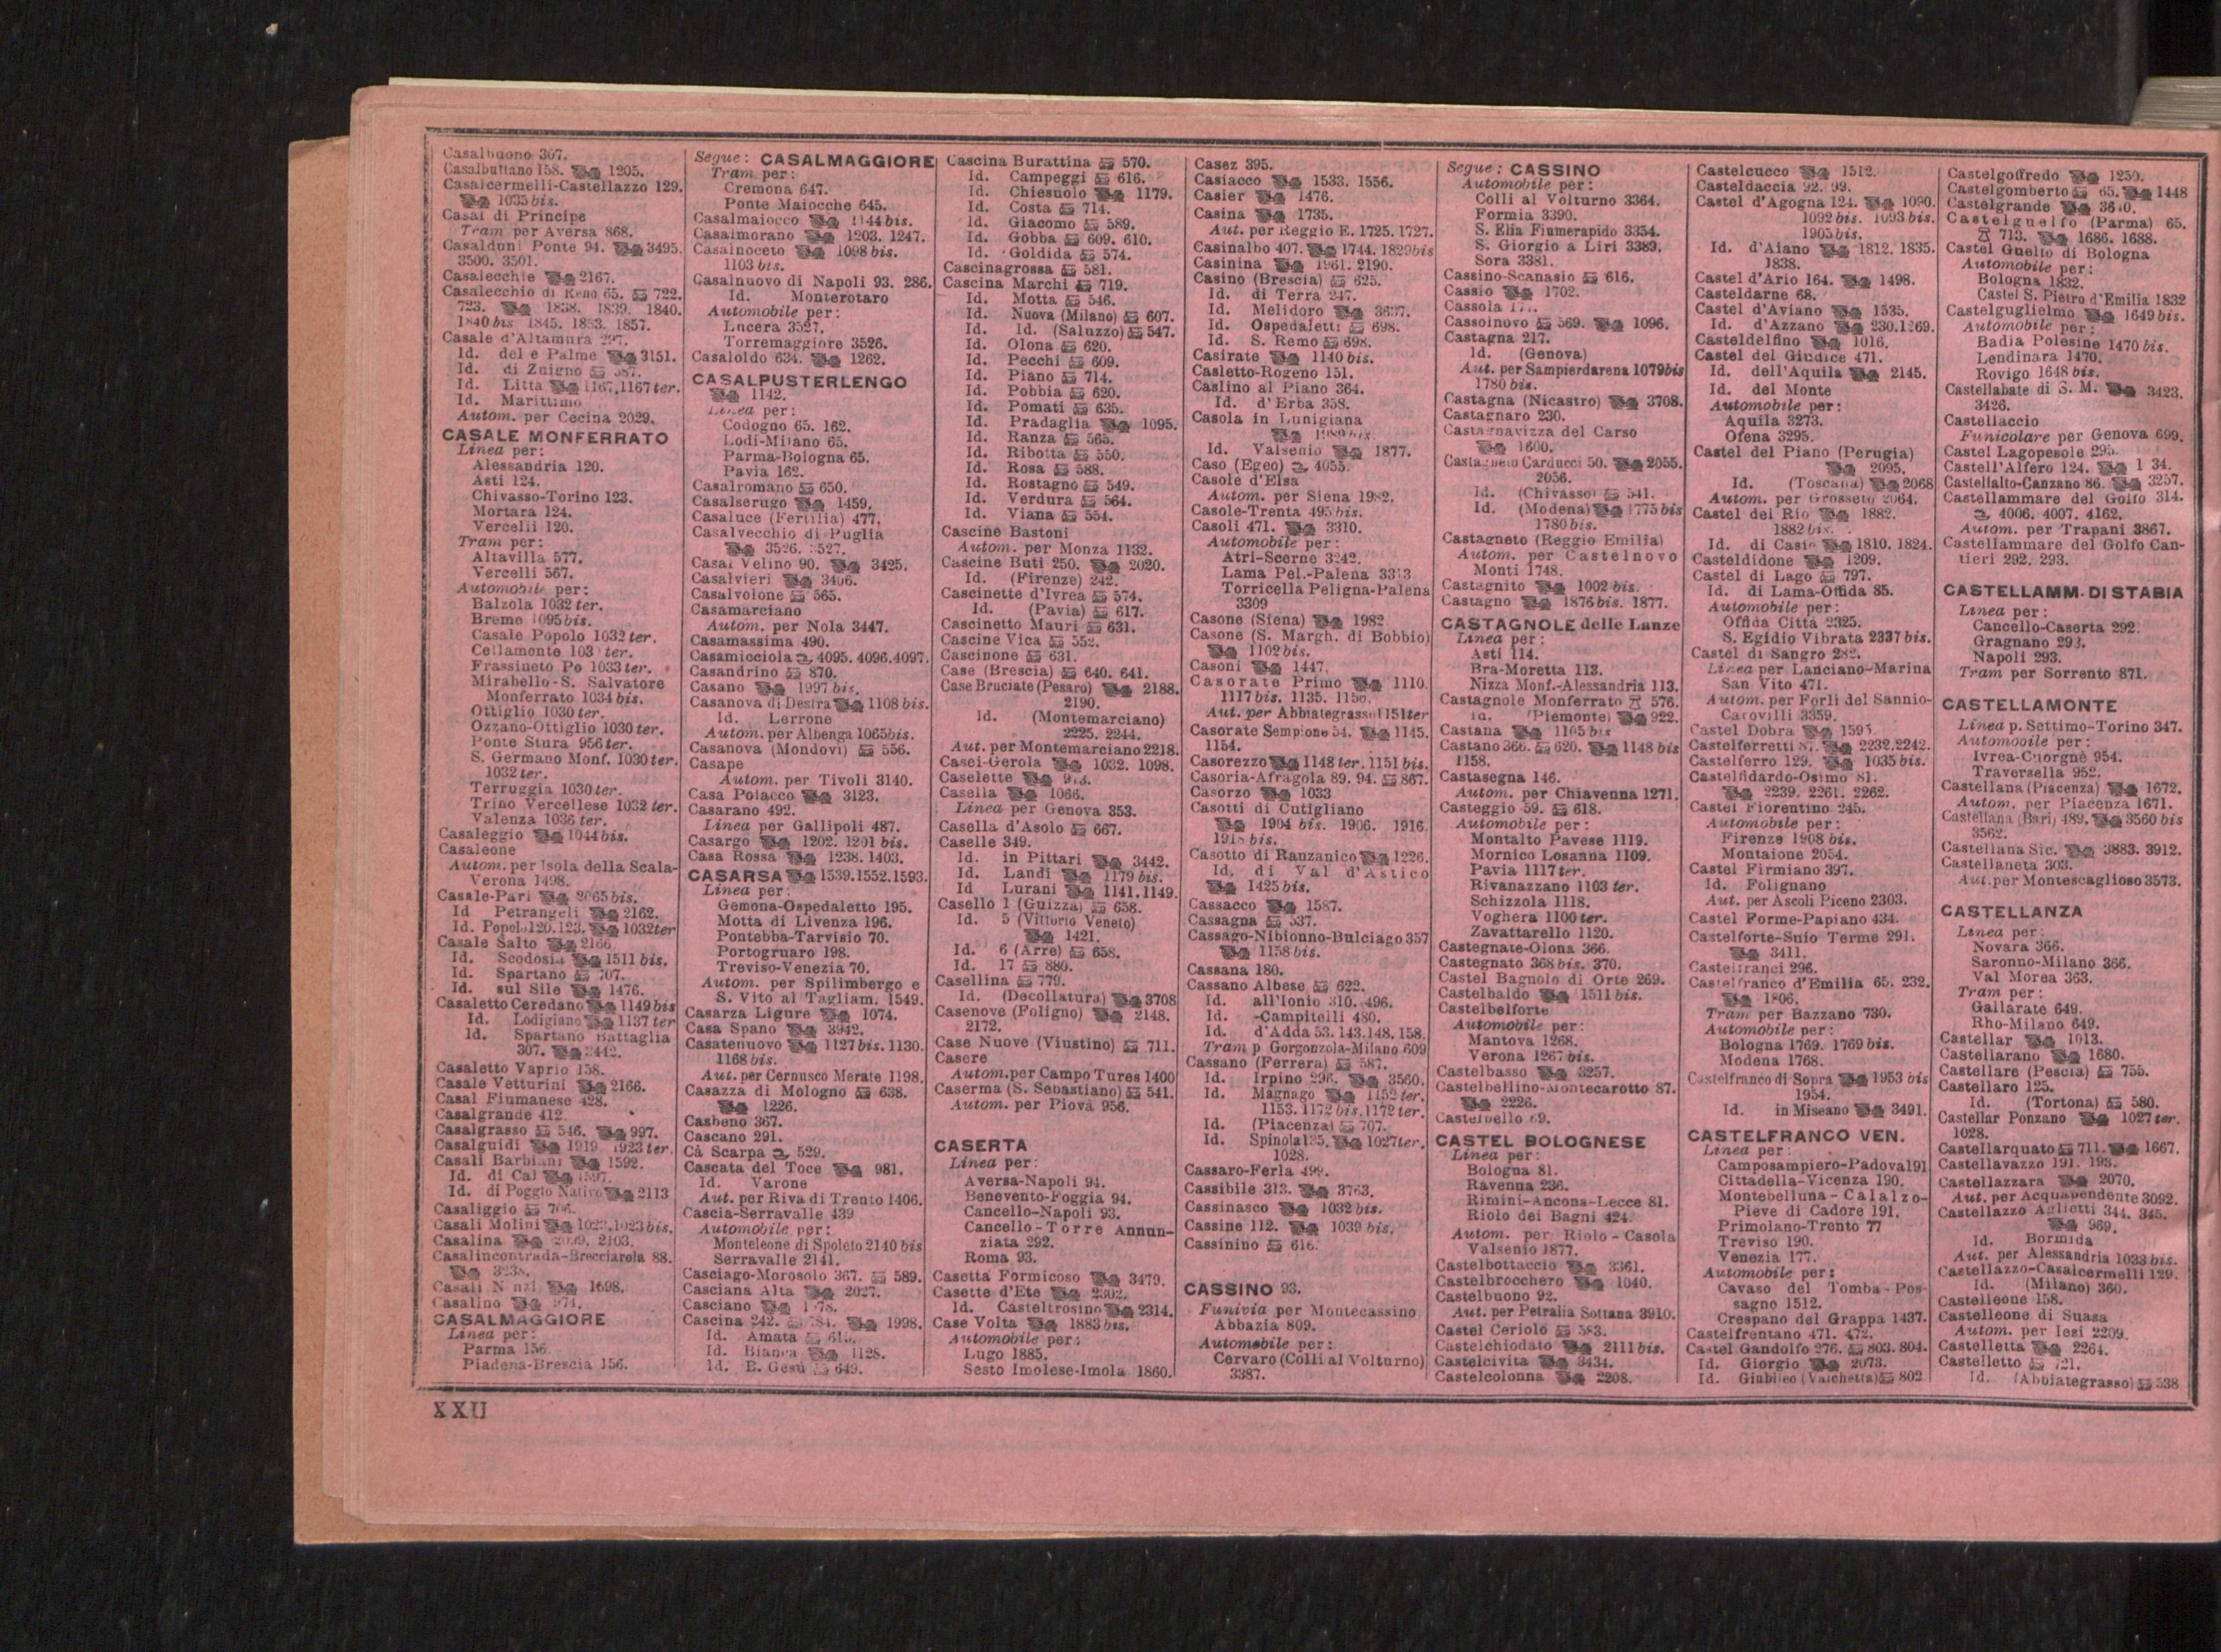 Casalbuono 307.
Casalbuttano 158. 1205.
Casalcermelli-Castellazzo 129.
1035 bis.
Casal di Principe
Tram per Aversa 868.
Casalduni Ponte 94. 3495.
3500. 3501.
Casalecchie 2167.
Casalecchio di Reno 65. 722.
723. 1838. 1839. 1840.
1840 bis 1845. 1853. 1857.
Casale d'Altamura 297.
Id. del e Palme 3151.
Id. di Zuigno 587.
Id. Litta 1167. 1167 ter.
Id. Marittimo
Autom. per Cecina 2029.
CASALE MONFERRATO
Linea per:
Alessandria 120.
Asti 124.
Chivasso-Torino 123.
Mortara 124.
Vercelli 120.
Tram per:
Altavilla 577.
Vercelli 567.
Automobile per:
Balzola 1032 ter.
Breme 1095 bis.
Casale Popolo 1032 ter.
Cellamonte 103 ter.
Frassineto Po 1033 ter.
Mirabello-S. Salvatore
Monferrato 1034 bis.
Ottiglio 1030 ter.
Ozzano-Ottiglio 1030 ter.
Ponte Stura 956 ter.
S. Germano Monf. 1030 ter.
1032 ter.
Terruggia 1030 ter.
Trino Vercellese 1032 ter.
Valenza 1036 ter.
Casaleggio 1044 bis.
Casaleone
Autom. per Isola della Scala-
Verona 1498.
Casale-Pari 2065 bis.
Id Petrangeli 2162.
Id. Popolo 120. 123. 1032 ter
Casale Salto 2166
Id. Scodosia 1511 bis.
Id. Spartano 707.
Id. sul Sile 1476.
Casaletto Ceredano 1149 bis
Id. Lodigiano 1137 ter
Id. Spartano Battaglia
307. 3442.
Casaletto Vaprio 158.
Casale Vetturini 2166.
Casal Fiumanese 428.
Casalgrande 412.
Casalgrasso 546. 997.
Casalguidi 1919 1923 ter
Casali Barbiani 1592.
Id. di Cal
Id. di Poggio Nativo 2113
Casaliggio
Casali Molini 1023. 1023 bis.
Casalina 2103.
Casalincontrada-Brecciarola 88.
3238.
Casali 1698.
Casalino 974.
CASALMAGGIORE
Linea per:
Parma 156.
Piadena-Brescia 156.
Segue: CASALMAGGIORE
Tram per:
Cremona 647.
Ponte Maiocche 645.
Casalmaiocco 1144 bis.
Casalmorano 1203. 1247.
Casalnoceto 1098 bis.
1103 bis.
Casalnuovo di Napoli 93. 286.
Id. Monterotaro
Automobile per:
Lucera 3527.
Torremaggiore 3526.
Casaloldo 634. 1262.
CASALPUSTERLENGO
1142.
Linea per:
Codogno 65. 162.
Lodi-Milano 65.
Parma-Bologna 65.
Pavia 162.
Casalromano 650.
Casalserugo 1459.
Casaluce (Fertilia) 477.
Casalvecchio di Puglia
3526. 3527.
Casal Velino 90. 3425.
Casalvieri 3406.
Casalvolone 565.
Casamarciano
Autom. per Nola 3447.
Casamassima 490.
Casamicciola 4095. 4096. 4097.
Casandrino 870.
Casano 1997 bis.
Casanova di Destra 1108 bis.
Id. Lerrone
Autom. per Albenga 1065 bis.
Casanova (Mondovì) 556.
Casape
Autom. per Tivoli 3140.
Casa Polacco 3123.
Casarano 492.
Linea per Gallipoli 487.
Casargo 1202. 1201 bis.
Casa Rossa 1238. 1403.
CASARSA 1539. 1552. 1593.
Linea per:
Gemona-Ospedaletto 195.
Motta di Livenza 196.
Pontebba-Tarvisio 70.
Portogruaro 198.
Treviso-Venezia 70.
Autom. per Spilimbergo e
S. Vito al Tagliam. 1549.
Casarza Ligure 1074.
Casa Spano 3942.
Casatenuovo 1127 bis. 1130.
1168 bis.
Aut. per Cernusco Merate 1198.
Casazza di Mologno 638.
1226.
Casbeno 367.
Cascano 291.
Cà Scarpa 529.
Cascata del Toce 981.
Id. Varone
Aut. per Riva di Trento 1406.
Cascia-Serravalle 439
Automobile per:
Monteleone di Spoleto 2140 bis
Serravalle 2141.
Casciago-Morosolo 367. 589.
Casciana Alta 2027.
Casciano
Cascina 242. 1998.
Id. Amata
Id. Bianca 1128.
Id. B. Gesù 649.
Cascina Burattina 570.
Id. Campeggi 616.
Id. Chiesuolo 1179.
Id. Costa 714.
Id. Giacomo 589.
Id. Gobba 609. 610.
Id. Goldida 574.
Cascinagrossa 581.
Cascina Marchi 719.
Id. Motta 546.
Id. Nuova (Milano) 607.
Id. Id. (Saluzzo) 547.
Id. Olona 620.
Id. Pecchi 609.
Id. Piano 714.
Id. Pobbia 620.
Id. Pomati 635.
Id. Pradaglia 1095.
Id. Ranza 565.
Id. Ribotta 550.
Id. Rosa 588.
Id. Rostagno 549.
Id. Verdura 564.
Id. Viana 554.
Cascine Bastoni
Autom. per Monza 1132.
Cascine Buti 250. 2020.
Id. (Firenze) 242.
Cascinette d'Ivrea 574.
Id. (Pavia) 617.
Cascinetto Mauri 631.
Cascine Vica 552.
Cascinone 631.
Case (Brescia) 640. 641.
Case Bruciate (Pesaro) 2188.
2190.
Id. (Montemarciano)
2225. 2244.
Aut. per Montemarciano 2218.
Casei-Gerola 1032. 1098.
Caselette
Casella 1066.
Linea per Genova 353.
Casella d'Asolo 667.
Caselle 349.
Id. in Pittari 3442.
Id. Landi 1179 bis.
Id Lurani 1141. 1149.
Casello 1 (Guizza) 658.
Id. 5 (Vittorio Veneto)
1421.
Id. 6 (Arre) 658.
Id. 17 880.
Casellina 779.
Id. (Decollatura) 3708
Casenove (Foligno) 2148.
2172.
Case Nuove (Viustino) 711.
Casere
Autom. per Campo Tures 1400
Caserma (S. Sebastiano) 541.
Autom. per Piovà 956.
CASERTA
Linea per:
Aversa-Napoli 94.
Benevento-Foggia 94.
Cancello-Napoli 93.
Cancello-Torre Annun-
ziata 292.
Roma 93.
Casetta Formicoso 3479.
Casette d'Ete 2302.
Id. Casteltrosino 2314.
Case Volta 1883 bis.
Automobile per:
Lugo 1885.
Sesto Imolese-Imola 1860.
Casez 395.
Casiacco 1533. 1556.
Casier 1476.
Casina 1735.
Aut. per Reggio E. 1725. 1727.
Casinalbo 407. 1744. 1829 bis
Casinina 1961. 2190.
Casino (Brescia) 625.
Id. di Terra 247.
Id. Melidoro
Id. Ospedaletti 698.
Id. S. Remo 698.
Casirate 1140 bis.
Casletto-Rogeno 151.
Caslino al Piano 364.
Id. d'Erba 358.
Casola in Lunigiana
1989 bis.
Id. Valsenio 1877.
Caso (Egeo) 4055.
Casole d'Elsa
Autom. per Siena 1982.
Casole-Trenta 495 bis.
Casoli 471. 3310.
Automobile per:
Atri-Scerne 3242.
Lama Pel.-Palena 3313
Torricella Peligna-Palena
3309
Casone (Siena) 1982
Casone (S. Margh. di Bobbio)
1102 bis.
Casoni 1447.
Casorate Primo 1110.
1117 bis. 1135. 1156.
Aut. per Abbiategrasso 1151 ter
Casorate Sempione 54. 1145.
1154.
Casorezzo 1148 ter. 1151 bis.
Casoria-Afragola 89. 94. 867.
Casorzo 1033
Casotti di Cutigliano
1904 bis. 1906. 1916.
1918 bis.
Casotto di Ranzanico 1226.
Id. di Val d'Astico
1425 bis.
Cassacco 1587.
Cassagna 537.
Cassago-Nibionno-Bulciago 357
1158 bis.
Cassana 180.
Cassano Albese 622.
Id. all'Ionio 310. 496.
Id. -Campitelli 480.
Id. d'Adda 53. 143. 148. 158.
Tram p Gorgonzola-Milano 609
Cassano (Ferrera) 587.
Id. Irpino 296. 3560.
Id. Magnago 1152 ter.
1153. 1172 bis. 1172 ter.
Id. (Piacenza) 707.
Id. Spinola 135. 1027 ter.
1028.
Cassaro-Ferla 499.
Cassibile 313. 3763.
Cassinasco 1032 bis.
Cassine 112. 1039 bis.
Cassinino 616.
CASSINO 93.
Funivia per Montecassino
Abbazia 809.
Automobile per:
Cervaro (Colli al Volturno)
3387.
Segue: CASSINO
Automobile per:
Colli al Volturno 3364.
Formia 3390.
S. Elia Fiumerapido 3354.
S. Giorgio a Liri 3389.
Sora 3381.
Cassino-Scanasio 616.
Cassio 1702.
Cassola
Cassolnovo 569. 1096.
Castagna 217.
Id. (Genova)
Aut. per Sampierdarena 1079 bis
1780 bis.
Castagna (Nicastro) 3708.
Castagnaro 230.
Castagnavizza del Carso
1600.
Castagneto Carducci 50. 2055.
2056.
Id. (Chivasso) 541.
Id. (Modena) 1775 bis
1780 bis.
Castagneto (Reggio Emilia)
Autom. per Castelnovo
Monti 1748.
Castagnito 1002 bis.
Castagno 1876 bis. 1877.
CASTAGNOLE delle Lanze
Linea per:
Asti 114.
Bra-Moretta 113.
Nizza Monf.-Alessandria 113.
Castagnole Monferrato 576.
Id. (Piemonte) 922.
Castana 1105 bis
Castano 366. 620. 1148 bis
1158.
Castasegna 146.
Autom. per Chiavenna 1271.
Casteggio 59. 618.
Automobile per:
Montalto Pavese 1119.
Mornico Losanna 1109.
Pavia 1117 ter.
Rivanazzano 1103 ter.
Schizzola 1118.
Voghera 1100 ter.
Zavattarello 1120.
Castegnate-Olona 366.
Castegnato 368 bis. 370.
Castel Bagnolo di Orte 269.
Castelbaldo 1511 bis.
Castelbelforte
Automobile per:
Mantova 1268.
Verona 1267 bis.
Castelbasso 3257.
Castelbellino-Montecarotto 87.
2226.
Castelbello 69.
CASTEL BOLOGNESE
Linea per:
Bologna 81.
Ravenna 236.
Rimini-Ancona-Lecce 81.
Riolo dei Bagni 424.
Autom. per Riolo-Casola
Valsenio 1877.
Castelbottaccio 3361.
Castelbrocchero 1040.
Castelbuono 92.
Aut. per Petralia Sottana 3910.
Castel Ceriolo 583.
Castelchiodato 2111 bis.
Castelcivita 3434.
Castelcolonna 2208.
Castelcucco 1512.
Casteldaccia 92. 99.
Castel d'Agogna 124. 1090.
1092 bis. 1093 bis.
1905 bis.
Id. d'Aiano 1812. 1835.
1838.
Castel d'Ario 164. 1498.
Casteldarne 68.
Castel d'Aviano 1535.
Id. d'Azzano 230. 1269.
Casteldelfino 1016.
Castel del Giudice 471.
Id. dell'Aquila 2145.
Id. del Monte
Automobile per:
Aquila 3273.
Ofena 3295.
Castel del Piano (Perugia)
2095.
Id. (Toscana) 2068
Autom. per Grosseto 2064.
Castel del Rio 1882.
1882 bis.
Id. di Casio 1810. 1824.
Casteldidone 1209.
Castel di Lago 797.
Id. di Lama-Offida 85.
Automobile per:
Offida Città 2325.
S. Egidio Vibrata 2337 bis.
Castel di Sangro 282.
Linea per Lanciano-Marina
San Vito 471.
Autom. per Forlì del Sannio-
Carovilli 3359.
Castel Dobra 1595.
Castelferretti 87. 2232. 2242.
Castelferro 129. 1035 bis.
Castelfidardo-Osimo 81.
2239. 2261. 2262.
Castel Fiorentino 245.
Automobile per:
Firenze 1908 bis.
Montaione 2054.
Castel Firmiano 397.
Id. Folignano
Aut. per Ascoli Piceno 2303.
Castel Forme-Papiano 434.
Castelforte-Suio Terme 291.
3411.
Castelfranci 296.
Castelfranco d'Emilia 65. 232.
1806.
Tram per Bazzano 730.
Automobile per:
Bologna 1769. 1769 bis.
Modena 1768.
Castelfranco di Sopra 1953 bis
1954.
Id. in Miscano 3491.
CASTELFRANCO VEN.
Linea per:
Camposampiero-Padova 191
Cittadella-Vicenza 190.
Montebelluna-Calalzo-
Pieve di Cadore 191.
Primolano-Trento 77
Treviso 190.
Venezia 177.
Automobile per:
Cavaso del Tomba-Pos-
sagno 1512.
Crespano del Grappa 1437.
Castelfrentano 471. 472.
Castel Gandolfo 276. 803. 804.
Id. Giorgio 2073.
Id. Giubileo (Valchetta) 802
Castelgoffredo 1250.
Castelgomberto 65. 1448
Castelgrande 3610.
Castelguelfo (Parma) 65.
713. 1686. 1688.
Castel Guelfo di Bologna
Automobile per:
Bologna 1832.
Castel S. Pietro d'Emilia 1832
Castelguglielmo 1649 bis.
Automobile per:
Badia Polesine 1470 bis.
Lendinara 1470.
Rovigo 1648 bis.
Castellabate di S. M. 3423.
3426.
Castellaccio
Funicolare per Genova 699.
Castel Lagopesole 295.
Castell'Alfero 124. 1 34.
Castellalto-Canzano 86. 3257.
Castellammare del Golfo 314.
4006. 4007. 4162.
Autom. per Trapani 3867.
Castellammare del Golfo Can-
tieri 292. 293.
CASTELLAMM. DI STABIA
Linea per:
Cancello-Caserta 292.
Gragnano 293.
Napoli 293.
Tram per Sorrento 871.
CASTELLAMONTE
Linea p. Settimo-Torino 347.
Automobile per:
Ivrea-Cuorgnè 954.
Traversella 952.
Castellana (Piacenza) 1672.
Autom. per Piacenza 1671.
Castellana (Bari) 489. 3560 bis
3562.
Castellana Sic. 3883. 3912.
Castellaneta 303.
Aut. per Montescaglioso 3573.
CASTELLANZA
Linea per:
Novara 366.
Saronno-Milano 366.
Val Morea 363.
Tram per:
Gallarate 649.
Rho-Milano 649.
Castellar 1013.
Castellarano 1680.
Castellare (Pescia) 755.
Castellaro 125.
Id. (Tortona) 580.
Castellar Ponzano 1027 ter.
1028.
Castellarquato 711. 1667.
Castellavazzo 191. 193.
Castellazzara 2070.
Aut. per Acquapendente 3092.
Castellazzo Aglietti 344. 345.
969.
Id. Bormida
Aut. per Alessandria 1033 bis.
Castellazzo-Casalcermelli 129.
Id. (Milano) 360.
Castelleone 158.
Castelleone di Suasa
Autom. per Iesi 2209.
Castelletta 2264.
Castelletto 721.
Id. (Abbiategrasso) 538
XXII